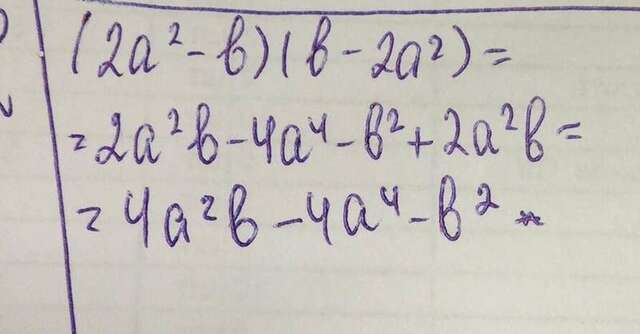 (2a² - b)(b - 2a²) =
= 2a²b - 4a⁴ - b² + 2a²b =
= 4a²b - 4a⁴ - b²